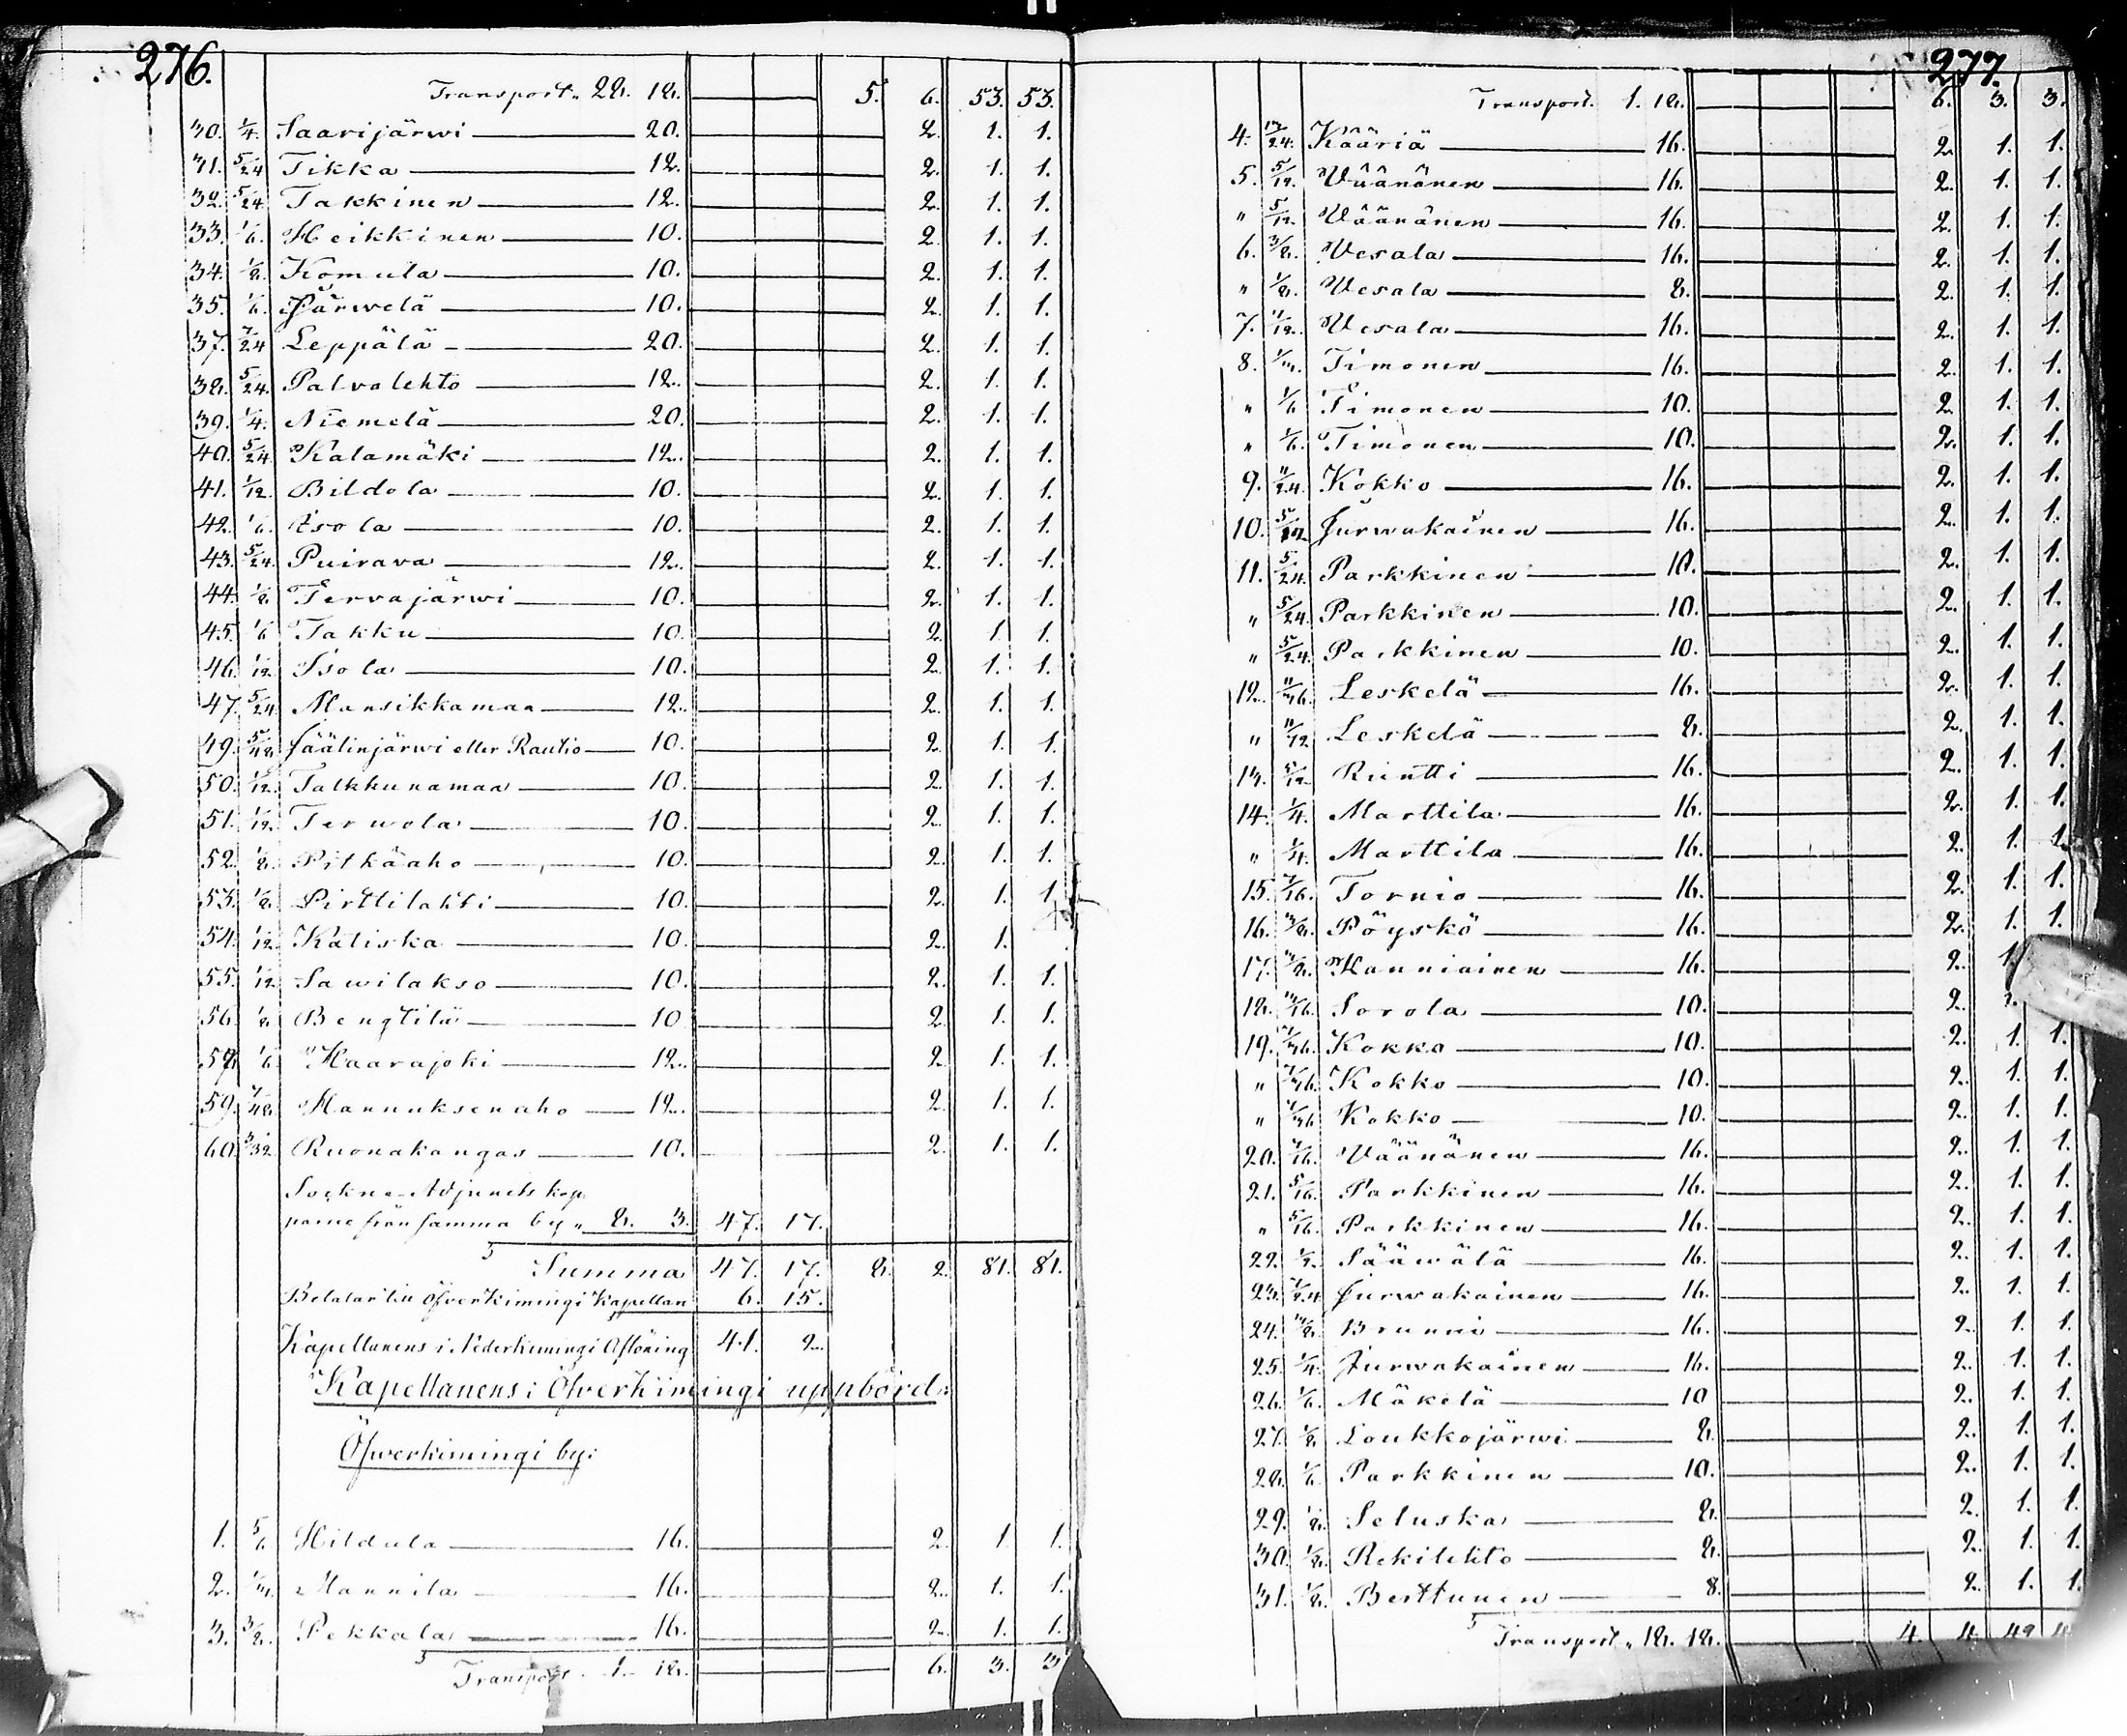 276.
Transport. 28. 18. 5. 6. 53. 53.
30. 1/4. Saarijärwi 20. 2. 1. 1.
31. 5/24 Tikka 12. 2. 1. 1.
32. 5/24 Takkinen 12. 2. 1. 1.
33. 1/6. Heikkinen 10. 2. 1. 1.
34. 1/8. Komula 10. 2. 1. 1.
35. 1/6. Järwelä 10. 2. 1. 1.
37. 7/24 Leppälä 20. 2. 1. 1.
38. 5/24. Palvalehto 12. 2. 1. 1.
39. 1/4. Niemelä 20. 2. 1. 1.
40. 5/24 Kalamäki 12. 2. 1. 1.
41. 1/12. Bildola 10. 2. 1. 1.
42. 1/6. Isola 10. 2. 1. 1.
43. 5/24. Puirava 12. 2. 1. 1.
44. 1/8. Tervajärwi 10. 2. 1. 1.
45. 1/6 Takku 10. 2. 1. 1.
46. 1/12. Isola 10. 2. 1. 1.
47. 5/24. Mansikkamaa 12. 2. 1. 1.
49. 5/48. Jäälinjärwi eller Rautio 10. 2. 1. 1.
50. 1/12. Talkkunamaa 10. 2. 1. 1.
51. 1/12. Terwola 10. 2. 1. 1.
52. 1/8. Pitkäaho 10. 2. 1. 1.
53. 1/8. Pirttilahti 10. 2. 1. 1.
54. 1/12. Katiska 10. 2. 1.
55. 1/12. Sawilakso 10. 2. 1. 1.
56. 1/8. Bengtilä 10 2. 1. 1.
1/6. Haarajoki 12. 2. 1. 1.
59. 7/48. Hannuksenaho 12. 2. 1. 1.
60. 3/32. Ruonakangas 10. 2. 1. 1.
Sockne-Adjunctskap
parne från samma by „ 8. 3. 47. 17.
Summa 47. 17. 8. 2. 81. 81.
Betalar till Öfverkimingi Kapellan 6. 15.
Kapellanens i Nederkimingi Aflöning 41. 2.
Kapellanens i Öfverkiimingi uppbörd:
Öfwerkimingi by:
1. 5/6 Hildula 16. 2. 1. 1.
2. Mannila 16. 2. 1. 1.
3. 3/8. Pekkala 16. 2. 1. 1.
Transport 1. 18. 6. 3. 3
277.
Transport. 1. 18. 6. 3. 3.
4. 13/24. Kääriä 16. 2. 1. 1.
5. 5/12. Väänänen 16. 2. 1. 1.
„ 5/12. Väänänen 16. 2. 1. 1.
6. 3/8. Vesala 16. 2. 1. 1.
„ 1/8. Vesala 8. 2. 1. 1.
7. 11/12. Vesala 16. 2. 1. 1.
8. Timonen 16. 2. 1. 1.
„ 1/6 Timonen 10. 2. 1. 1.
„ 1/6. Timonen 10. 2. 1. 1.
9. 11/24. Kokko 16. 2. 1. 1.
10. 5/12 Jurwakainen 16. 2. 1. 1.
11. 5/24. Parkkinen 10. 2. 1. 1.
„ 5/24. Parkkinen 10. 2. 1. 1.
„ 5/24. Parkkinen 10. 2. 1. 1.
12. Leskelä 16. 2. 1. 1.
„ 11/12. Leskelä 8. 2. 1. 1.
13. 5/12. Rientti 16. 2. 1. 1.
14. 1/4. Marttila 16. 2. 1. 1.
„ 1/4. Marttila 16. 2. 1. 1.
15. 7/16. Tornio 16. 2. 1. 1.
16. 3/8. Pöyskö 16. 2. 1. 1.
17. 3/8. Hanniainen 16. 2. 1.
18. 3/16. Sorola 10. 2.
19. Kokko 10. 2. 1. 1.
„ Kokko 10. 2. 1. 1.
„ Kokko 10. 2. 1. 1.
20. 7/16. Väänänen 16. 2. 1. 1.
21. 5/16. Parkkinen 16. 2. 1. 1.
„ 5/16. Parkkinen 16. 2. 1. 1.
22. 1/2. Sääwälä 16. 2. 1. 1.
23. 7/24 Jurwakainen 16. 2. 1. 1.
24. 3/8. Brunni 16. 2. 1. 1.
25. 1/4. Jurwakainen 16. 2. 1. 1.
26. 1/6. Mäkelä 10 2. 1. 1.
27. 1/8. Loukkojärwi 8. 2. 1. 1.
28. 1/6. Parkkinen 10. 2. 1. 1.
29. 1/8. Seluska 8. 2. 1. 1.
30. 1/8. Rekilehto 8. 2. 1. 1.
31. 1/8. Berttunen 8. 2. 1. 1.
Transport „ 18. 18. 4. 4. 42